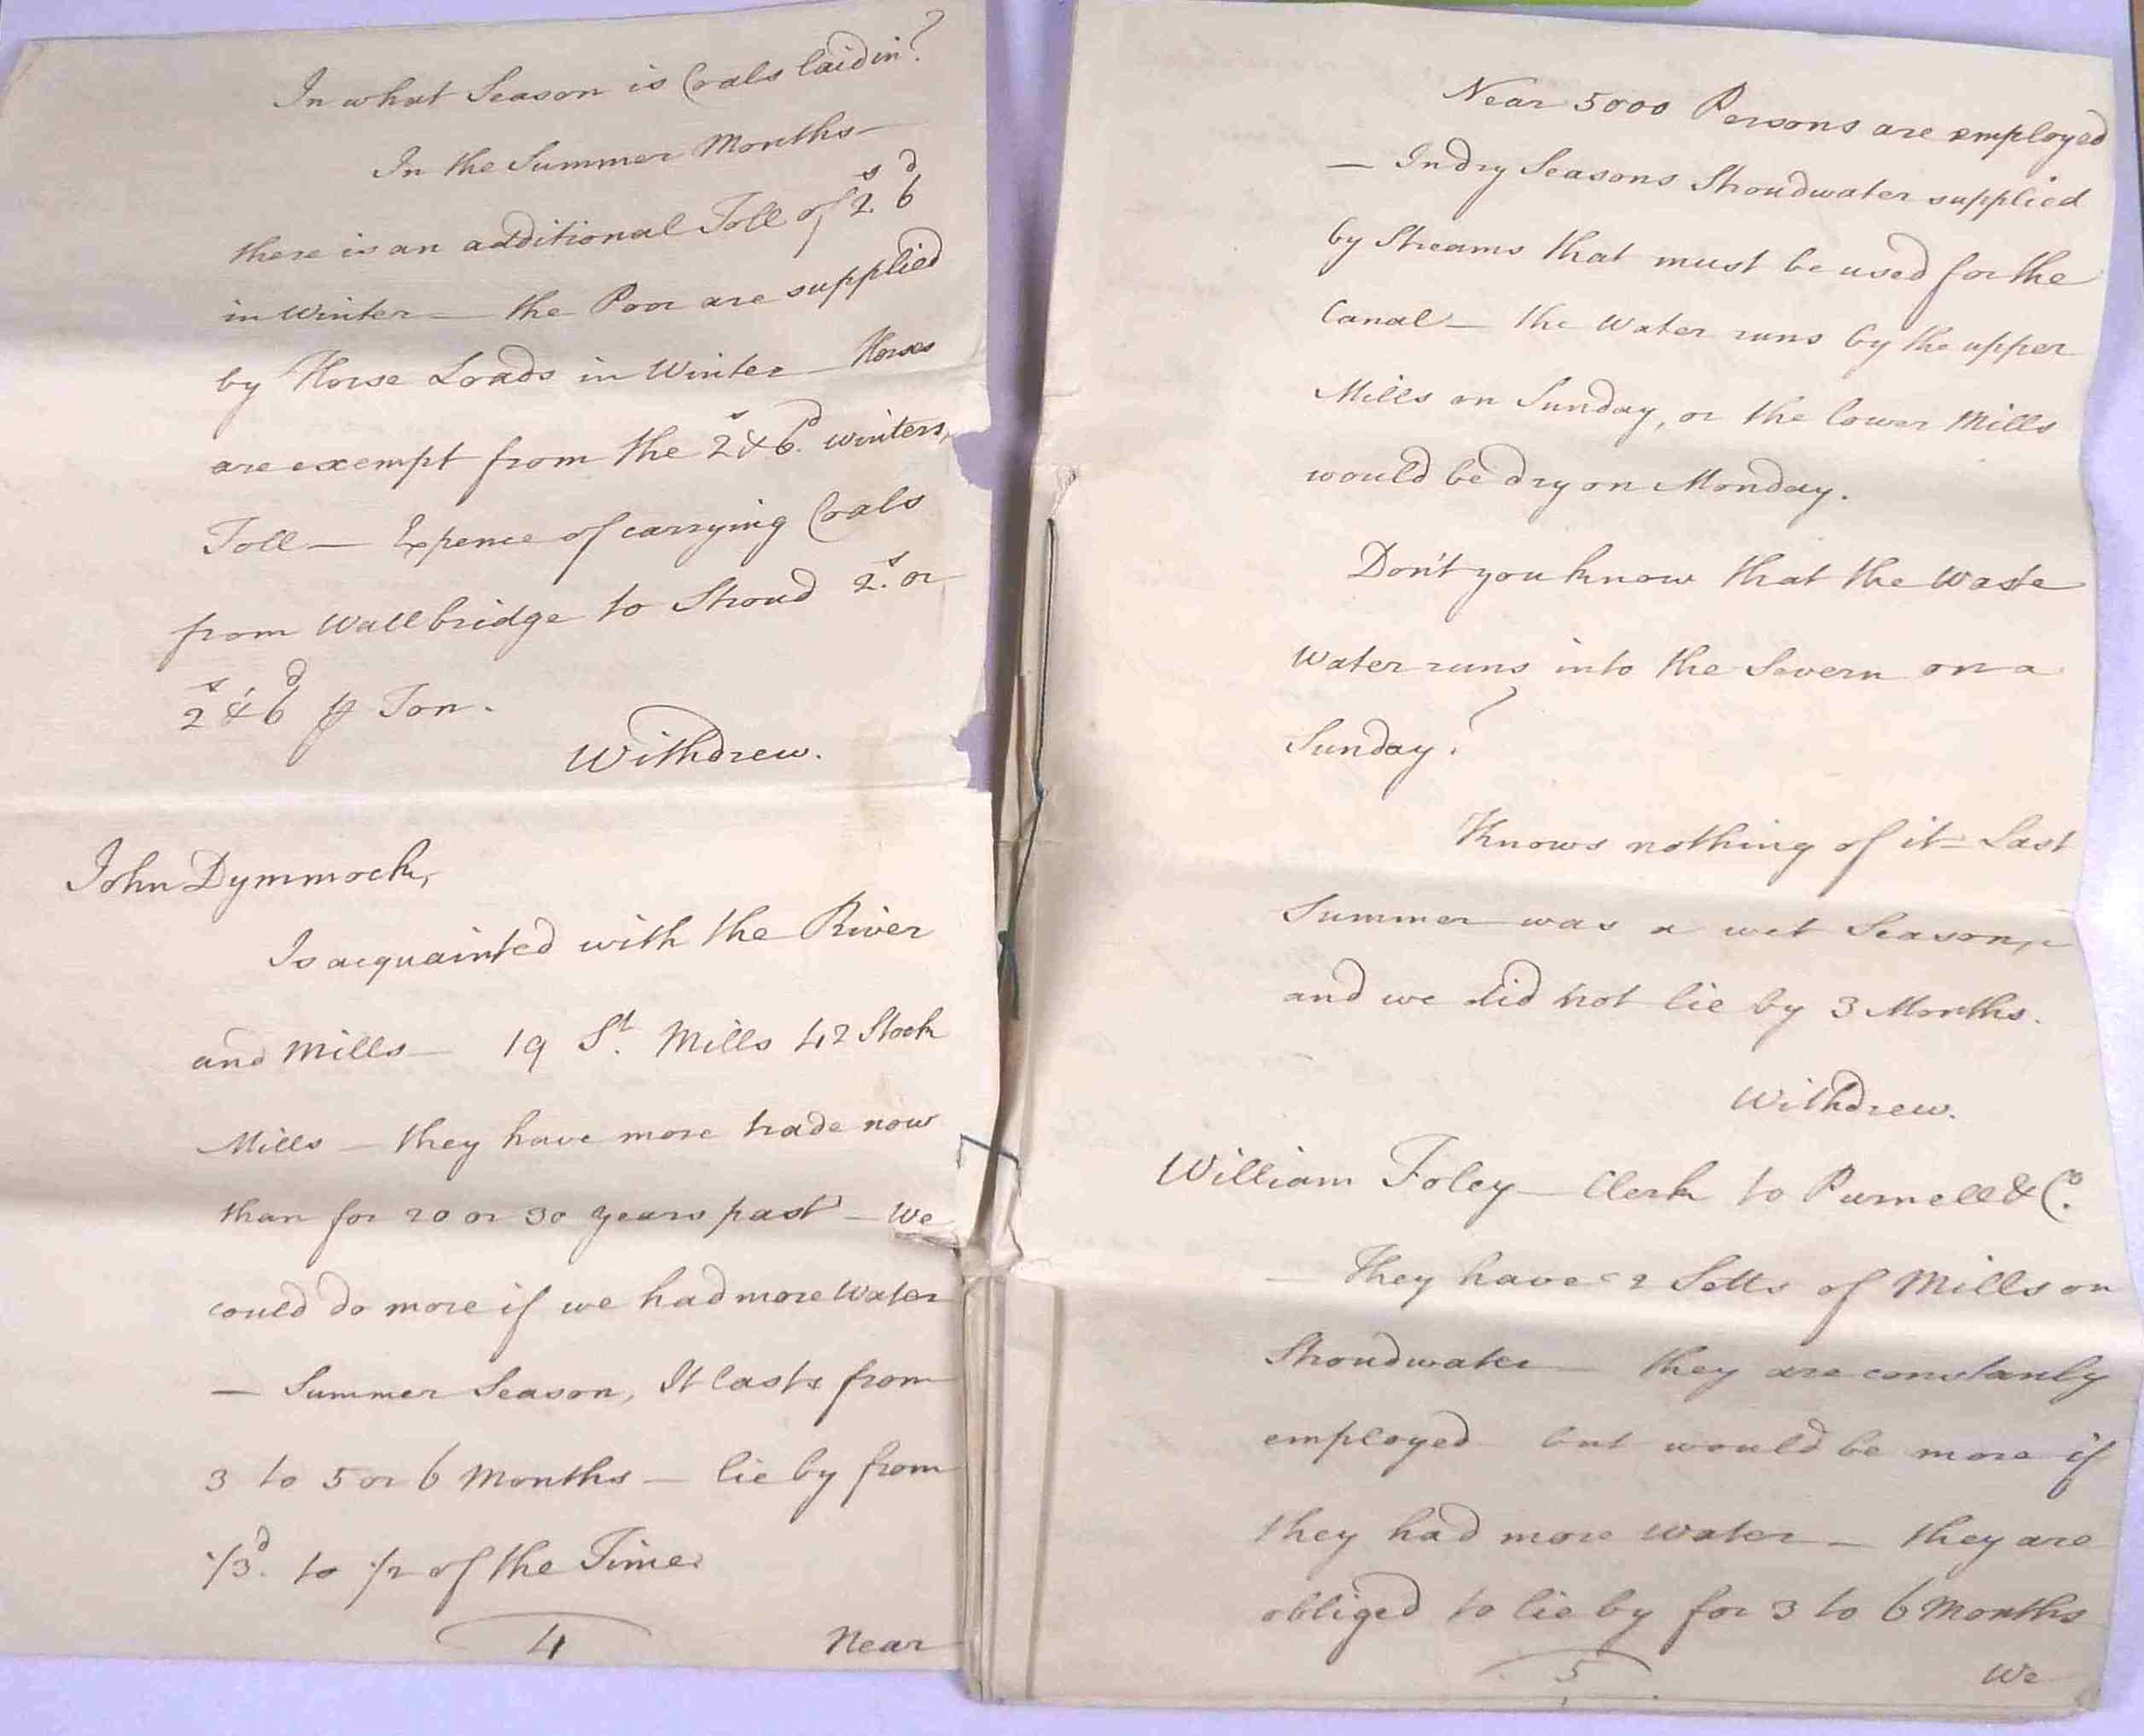 In what Season is Coals laid in?
In the Summer Months —
there is an additional Toll of 2s 6d
in Winter — the Poor are supplied
by Horse Loads in Winter — Horses
are exempt from the 2s & 6d. winters
Toll — Expence of carrying Coals
from Wallbridge to Stroud 2s. or
2s & 6d ⅌ Ton.
Withdrew.
John Dymmock,
Is acquainted with the River
and Mills — 19 St. Mills 42 Stock
Mills — they have more trade now
than for 20 or 30 years past — We
could do more if we had more Water
— Summer Season, It lasts from
3 to 5 or 6 Months — lie by from
1/3d. to 1/2 of the Time.
4
Near
Near 5000 Persons are employed
— In dry Seasons Stroudwater supplied
by Streams that must be used for the
Canal — the Water runs by the upper
Mills on Sunday, or the lower Mills
would be dry on Monday.
Don't you know that the Waste
Water runs into the Severn on a
Sunday?
Knows nothing of it — Last
Summer was a wet Season,
and we did not lie by 3 Months.
Withdrew.
William Foley — Clerk to Purnell & Co.
— They have 2 Setts of Mills on
Stroudwater — they are constantly
employed but would be more if
they had more Water — they are
obliged to lie by for 3 to 6 Months
5
We